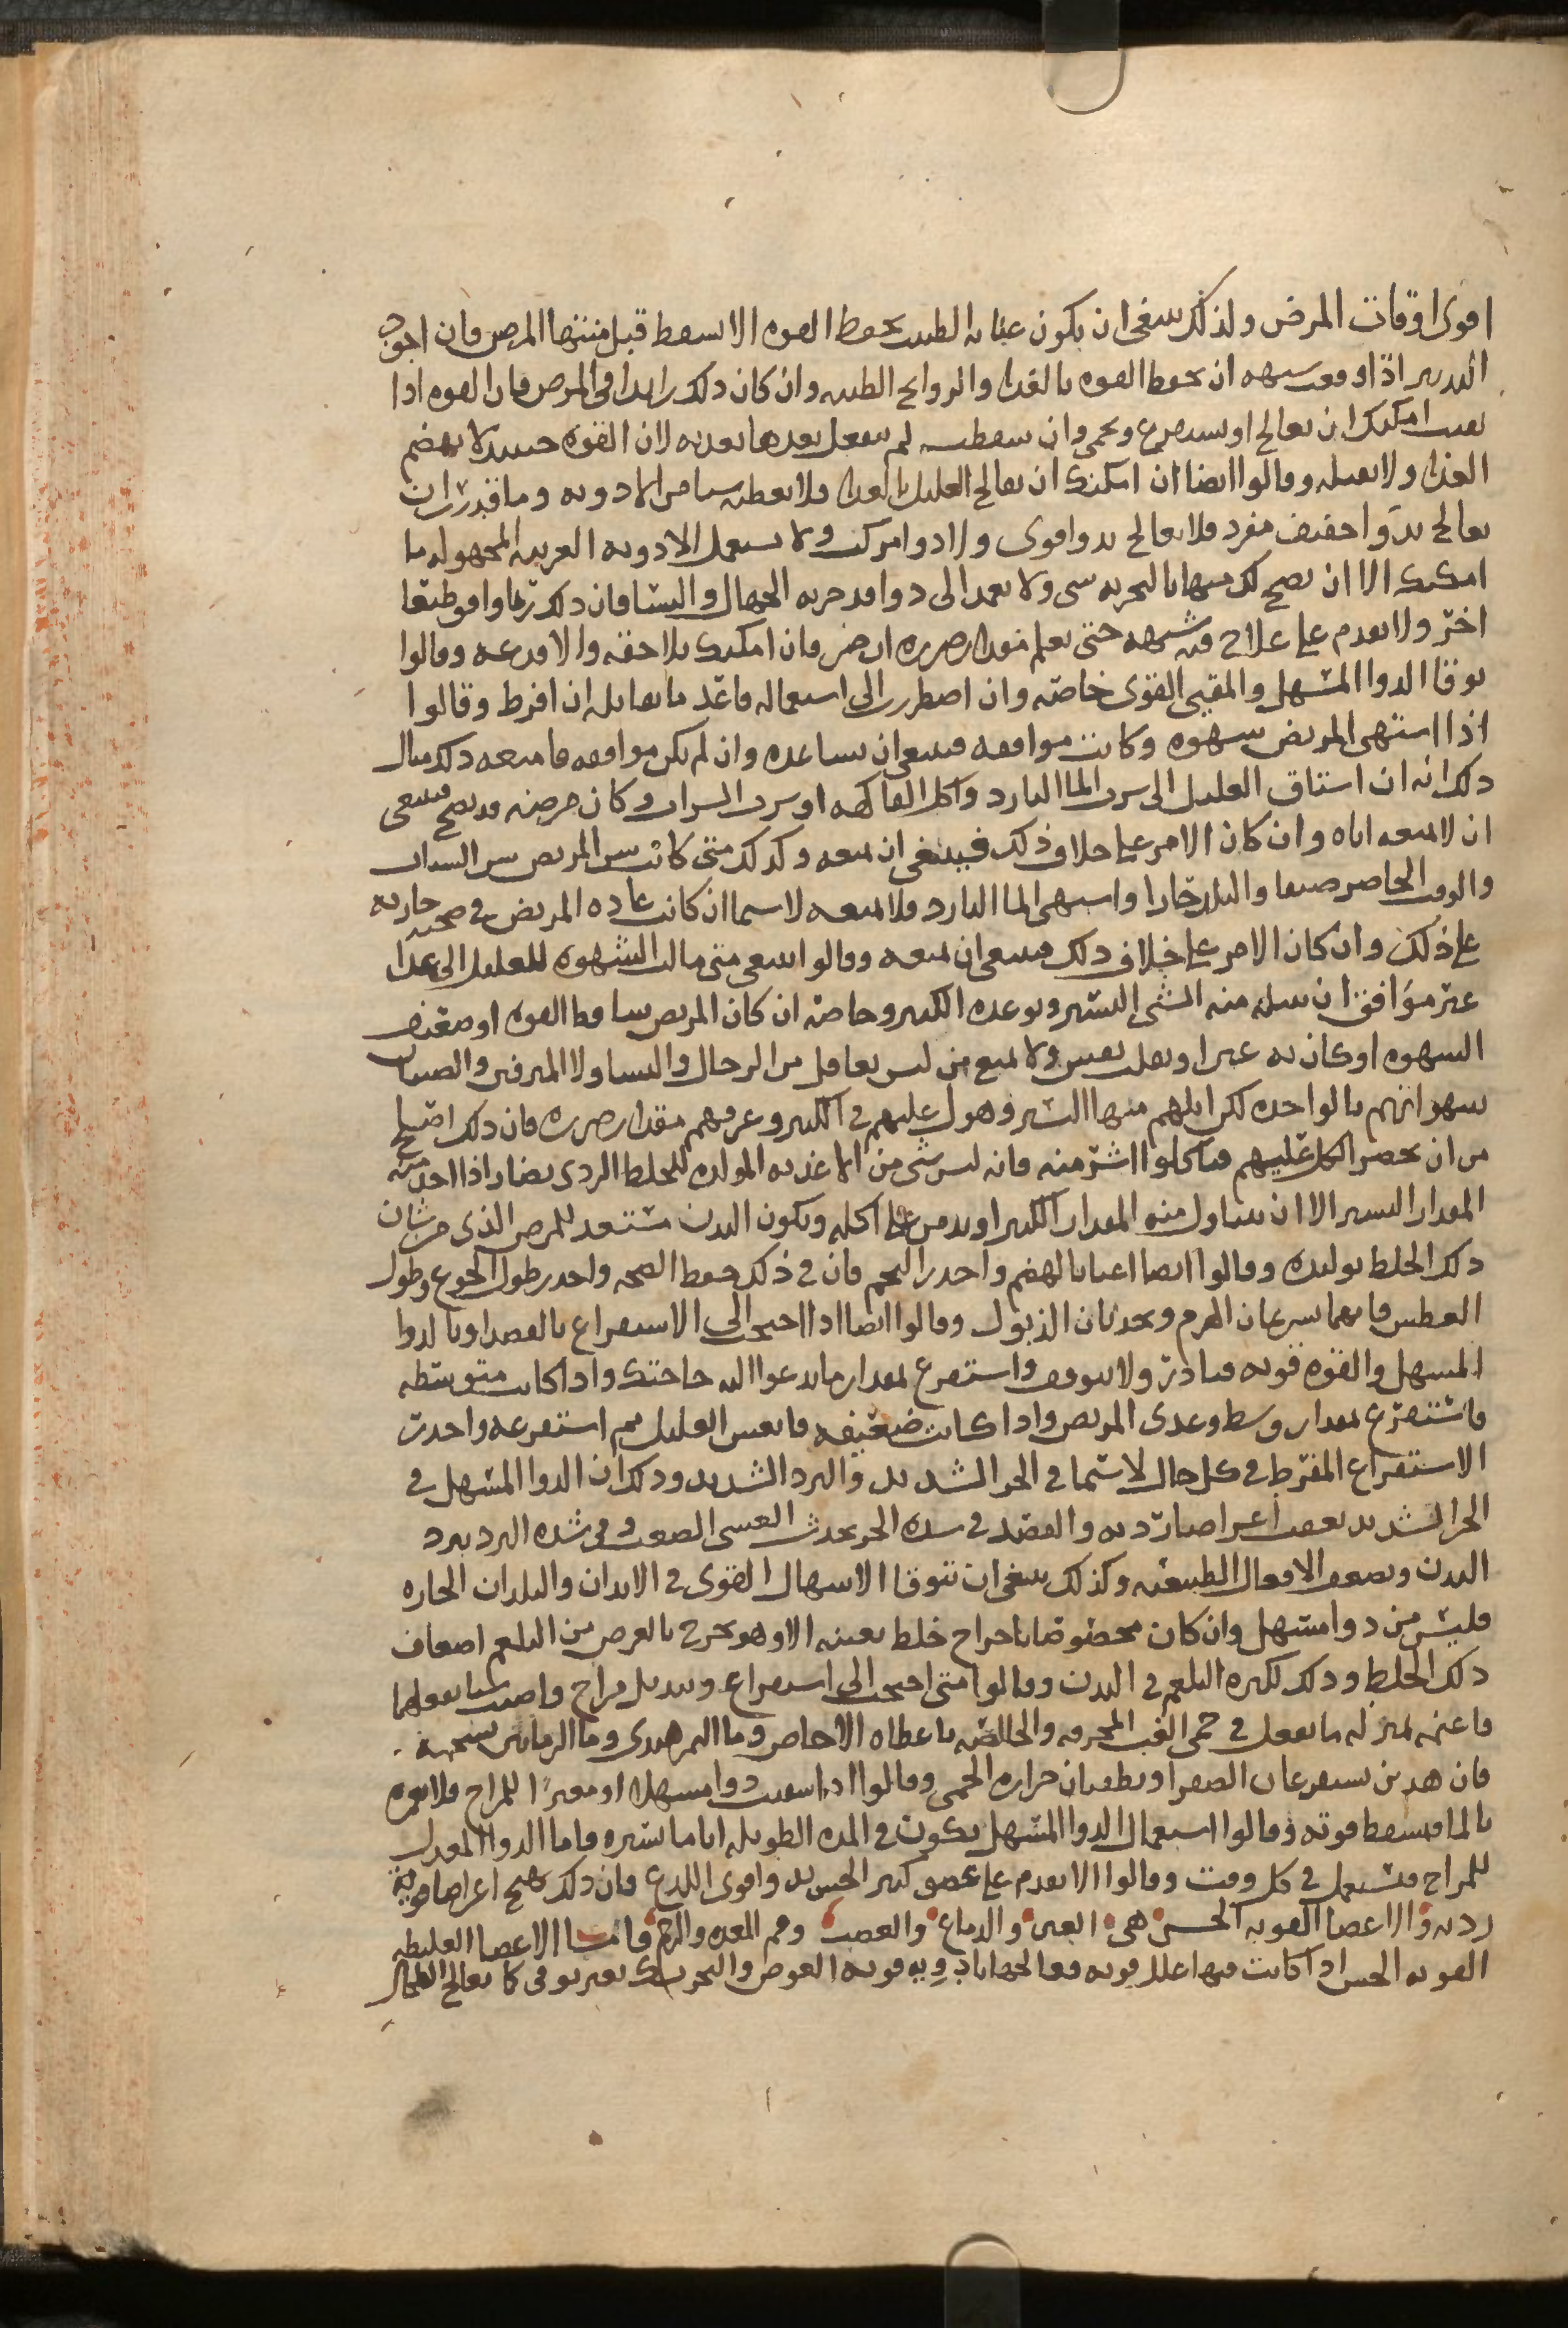 اقوى اوقات المرض ولذلك ينبغى ان يكون عنايه الطبيب بحفظ القوه الا تسقط قبل منتها المرض فان اجود
التدبير اذا وقعت شبهه ان تحفظ القوه بالغذا والروايح الطيبه وان كان ذلك زايدا فى المرض فان القوه اذا
بقيت امكنك ان تعالج او تستفرغ وتحمى وان سقطت لم ينفعك بعدها تغذيه لان القوه حينيد لا تهضم
الغذا ولا تقبله وقالوا ايضا ان امكنك ان تعالج العليل بالغذا فلا تعطه شيا من الادويه وما قدرت ان
تعالج بدوا خفيف مفرد فلا تعالج بدوا قوى ولا دوا مركب ولا تستعمل الادويه الغريبه المجهوله ما
امكنك الا ان يصح لك منها بالتجربه شى ولا تعمد الى دوا قد جربه الجهال والنسا فان ذلك ربما وافق طبعا
اخر ولا تقدم على علاج فيه شبهه حتى تعلم مقدار ضرره ان ضر فان امكنك تلاحقه والا فدعه وقالوا
توقا الدوا المسهل والمقيى القوى خاصه وان اضطررت الى استعماله فاعد ما يقابله ان افرط وقالوا
اذا اشتهى المريض شهوه وكانت موافقه فينبغى ان تساعده وان لم تكن موافقه فامنعه ذلك مثال
ذلك انه ان اشتاق العليل الى شرب الما البارد واكل الفاكهه او شرب الشراب وكان مرضه قد نضج فينبغى
ان لا تمنعه اياه وان كان الامر على خلاف ذلك فينبغى ان تمنعه وكذلك متى كانت سن المريض سن الشباب
والوقت الحاضر صيفا والبلد حارا واشتهى الما البارد فلا تمنعه لاسيما ان كانت عاده المريض فى صحته جاريه
على ذلك وان كان الامر على خلاف ذلك فينبغى ان تمنعه وقالوا ينبغى متى مالت الشهوه للعليل الى غدا
غير موافق ان تنيله منه الشى اليسير وتوعده الكثير وخاصه ان كان المريض ساقط القوه او ضعيف
الشهوه او كان به غشى او تقلب نفس ولا تمنع من ليس بعاقل من الرجال والنسا ولا المترفين والصبيان
شهواتهم بالواحده لكن انلهم منها اليسير وهول عليهم فى الكثير وعرفهم مقدار ضرره فان ذلك اصلح
من ان تحصر الكل عليهم فياكلوا اشر منه فانه ليس شى من الاغذيه المولده للخلط الردى بضار اذا اخذ منه
المقدار اليسير الا ان يتناول منه المقدار الكثير او يدمن على اكله ويكون البدن مستعد للمرض الذى من شان
ذلك الخلط توليده وقالوا ايضا اعنا بالهضم واحذر التخم فان فى ذلك حفظ الصحه واحذر طول الجوع وطول
العطش فانهما يسرعان الهرم ويحدثان الذبول وقالوا ايضا اذا احتجت الى الاستفراغ بالفصد او بالدوا
المسهل والقوه قويه فبادر ولا تتوقف واستفرغ بمقدار ما يدعوا اليه حاجتك واذا كانت متوسطه
فاستفرغ بمقدار وسط وغدى المريض واذا كانت ضعيفه فانعش العليل ثم استفرغه واحذر
الاستفراغ المفرط فى كل حال لاسيما فى الحر الشديد والبرد الشديد وذلك ان الدوا المسهل فى
الحر الشديد يعقب اعراضا رديه والفصد فى شده الحر يحدث الغشى الصعب وفى شده البرد يبرد
البدن ويضعف الافعال الطبيعيه وكذلك ينبغى ان تتوقا الاسهال القوى فى الابدان والبلدان الحاره
فليس من دوا مسهل وان كان مخصوصا باخراج خلط بعينه الا وهو يخرج بالعرض من البلغم اضعاف
ذلك الخلط وذلك لكثره البلغم فى البدن وقالوا متى احتجت الى استفراغ وتبديل مزاج واصبت شيا يفعلهما
فاغنمه بمنزله ما يفعل فى حمى الغب المحرقه والخالصه باعطاه الاجاص وما التمر هندى وما الرمانين بشحمه
فان هذين يستفرغان الصفرا ويطفيان حراره الحمى وقالوا اذا سقيت دوا مسهلا او مغيرًا للمزاج فلا تغمره
بالما فتسقط قوته وقالوا استعمال الدوا المسهل يكون فى المده الطويله اياما يسيره فاما الدوا المعدل
للمزاج فتستعمل فى كل وقت وقالوا الا تقدم على عضو كثير الحس بدوا قوى اللذع فان ذلك يهيج اعراضا قويه
رديه والاعضا القويه الحس هى العين والدماغ والعصب وفم المعده والرحم فاما الاعضا الغليظه
القويه الحس اذا كانت فيها علل قويه فعالجها بادويه قويه الغوص والتحريك بغير توقى كما تعالج الطحال